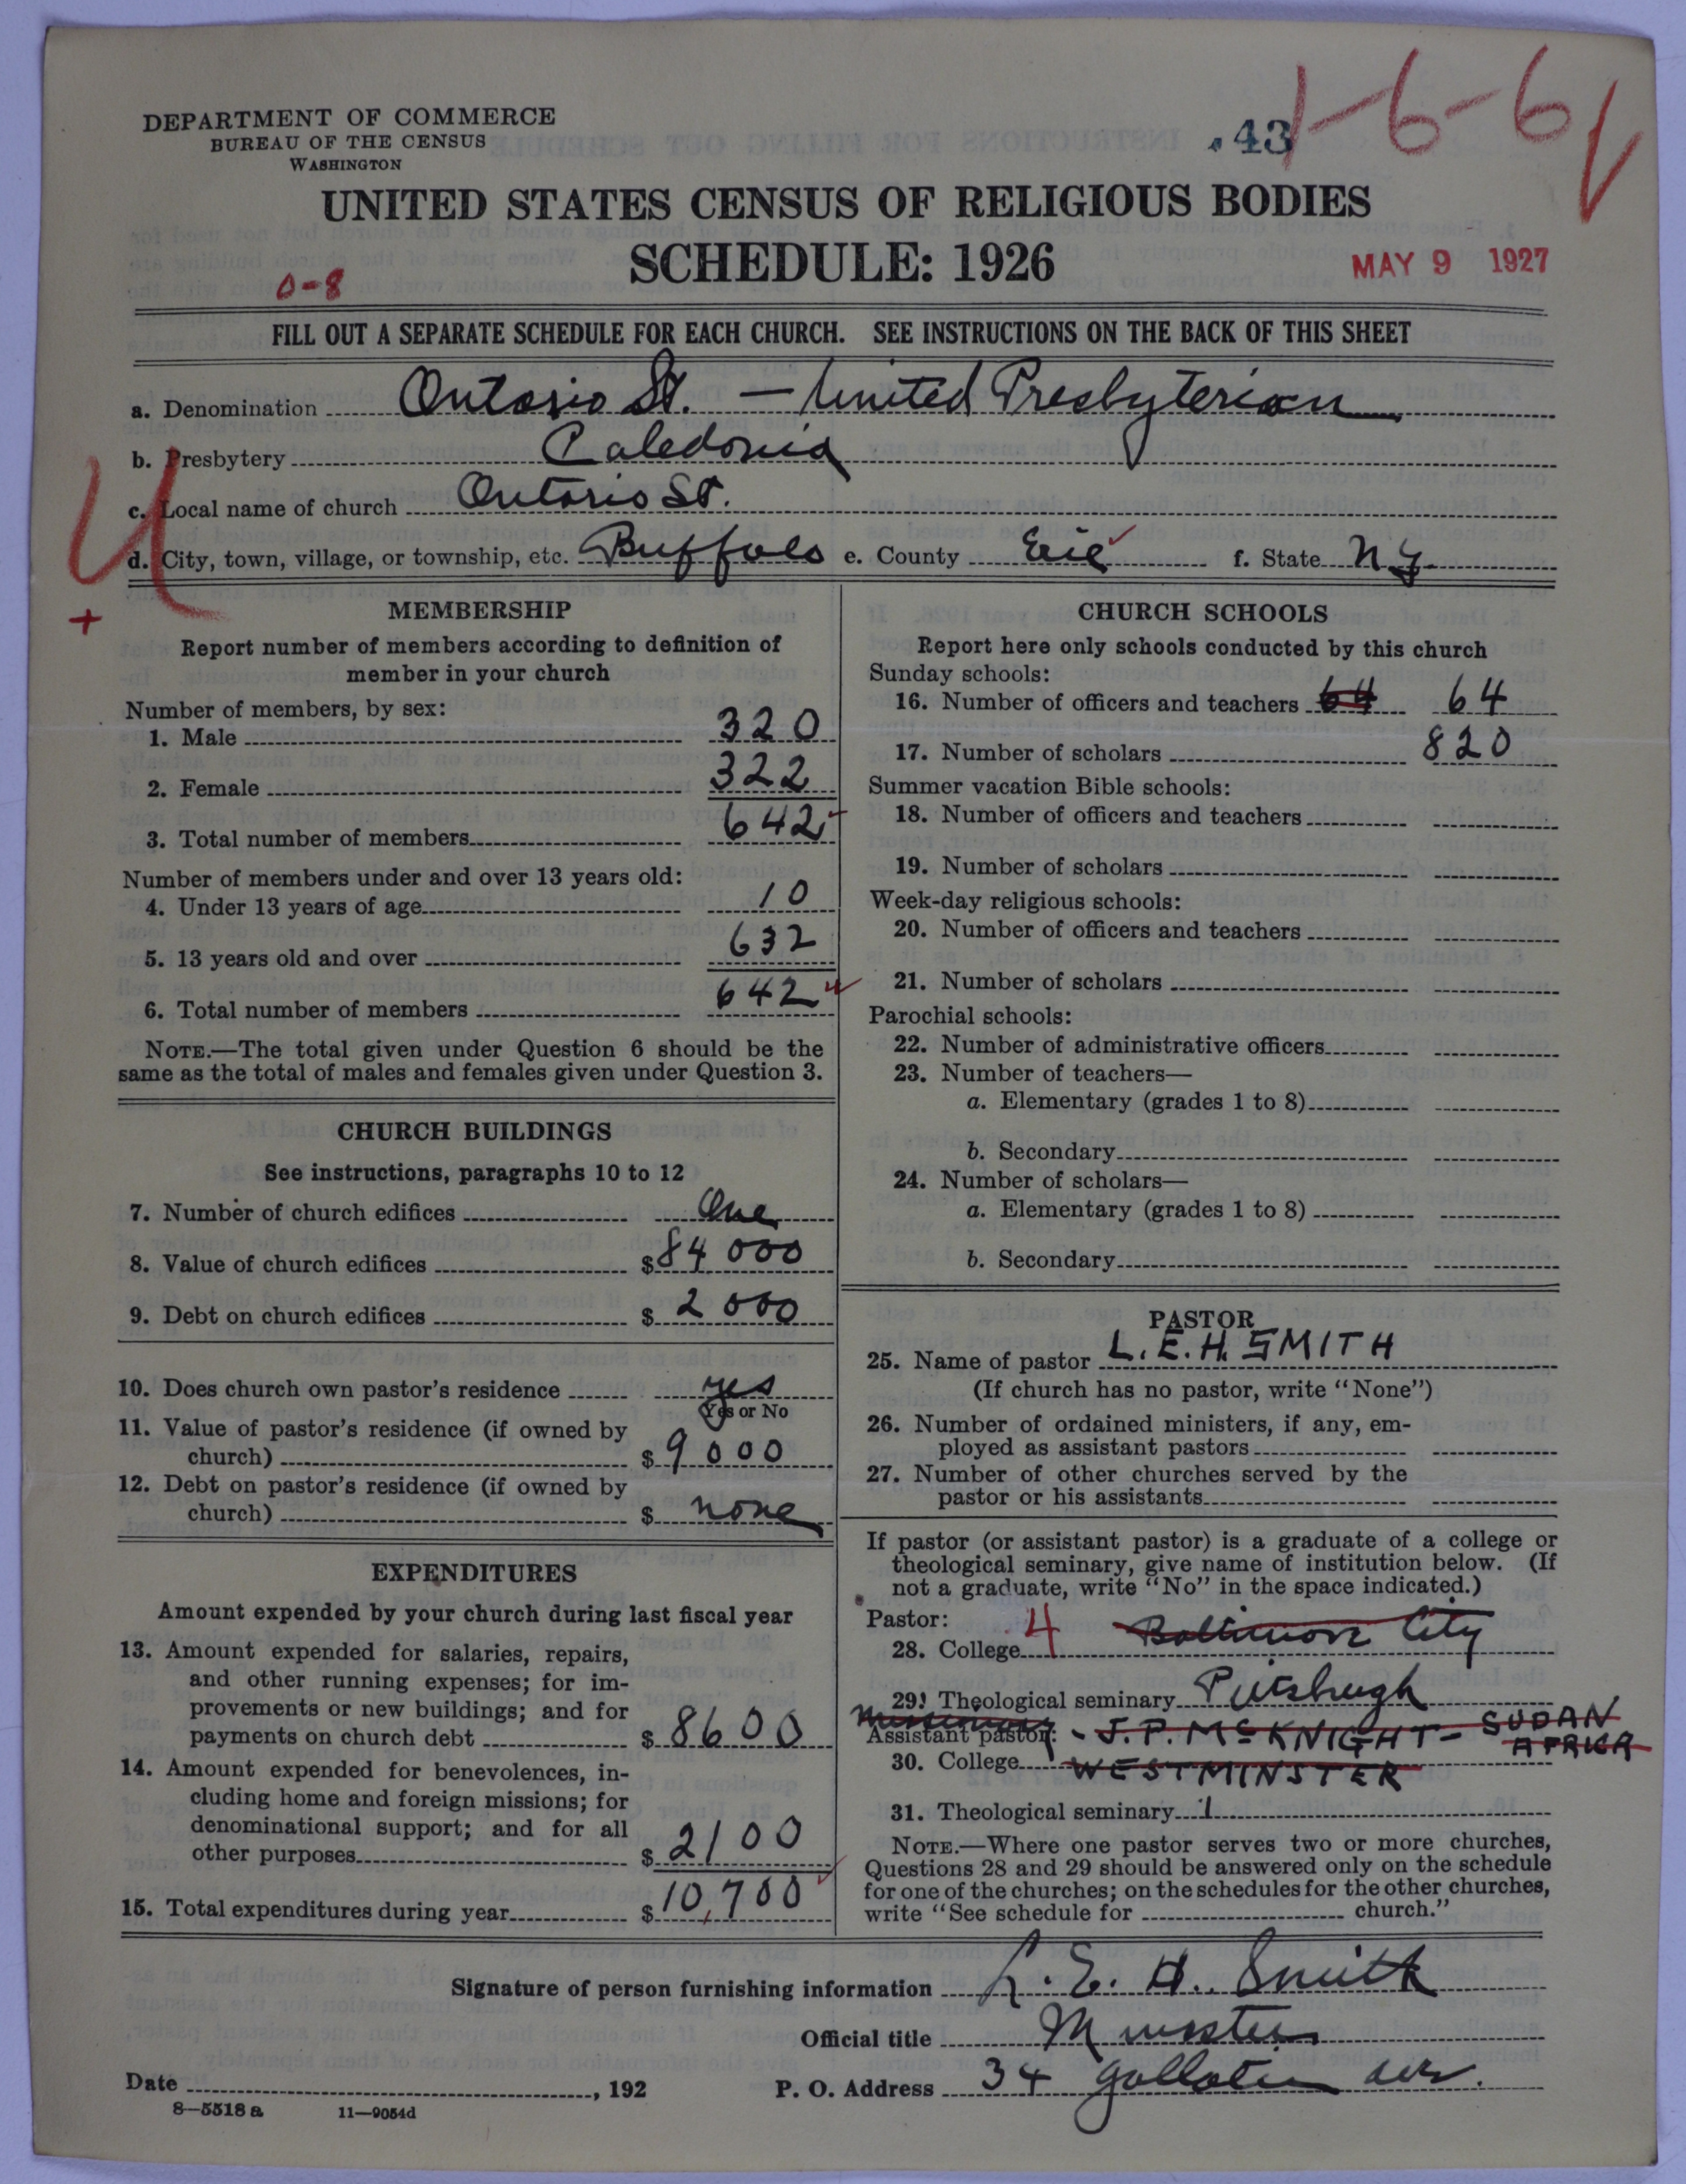 DEPARTMENT OF COMMERCE
BUREAU OF THE CENSUS
WASHINGTON
43
1-6-6
UNITED STATES CENSUS OF RELIGIOUS BODIES
SCHEDULE: 1926
MAY 9 1927
0-8
FILL OUT A SEPARATE SCHEDULE FOR EACH CHURCH. SEE INSTRUCTIONS ON THE BACK OF THIS SHEET
a. Denomination Ontario St. — United Presbyterian
b. Presbytery Caledonia
c. Local name of church Ontario St.
d. City, town, village, or township, etc. Buffalo e. County Erie f. State N.Y.
MEMBERSHIP
Report number of members according to definition of
member in your church
Number of members, by sex:
1. Male 320
2. Female 322
3. Total number of members 642
Number of members under and over 13 years old:
4. Under 13 years of age 10
5. 13 years old and over 632
6. Total number of members 642
NOTE.—The total given under Question 6 should be the
same as the total of males and females given under Question 3.
CHURCH BUILDINGS
See instructions, paragraphs 10 to 12
7. Number of church edifices One
8. Value of church edifices $84 000
9. Debt on church edifices $2 000
10. Does church own pastor's residence yes
Yes or No
11. Value of pastor's residence (if owned by
church) $9000
12. Debt on pastor's residence (if owned by
church) $none
EXPENDITURES
Amount expended by your church during last fiscal year
13. Amount expended for salaries, repairs,
and other running expenses; for im-
provements or new buildings; and for
payments on church debt $8600
14. Amount expended for benevolences, in-
cluding home and foreign missions; for
denominational support; and for all
other purposes $2100
15. Total expenditures during year $10,700
CHURCH SCHOOLS
Report here only schools conducted by this church
Sunday schools:
16. Number of officers and teachers 64 64
17. Number of scholars 820
Summer vacation Bible schools:
18. Number of officers and teachers
19. Number of scholars
Week-day religious schools:
20. Number of officers and teachers
21. Number of scholars
Parochial schools:
22. Number of administrative officers
23. Number of teachers—
a. Elementary (grades 1 to 8)
b. Secondary
24. Number of scholars—
a. Elementary (grades 1 to 8)
b. Secondary
PASTOR
25. Name of pastor L. E. H. SMITH
(If church has no pastor, write "None")
26. Number of ordained ministers, if any, em-
ployed as assistant pastors
27. Number of other churches served by the
pastor or his assistants
If pastor (or assistant pastor) is a graduate of a college or
theological seminary, give name of institution below. (If
not a graduate, write "No" in the space indicated.)
Pastor:
28. College 4 Baltimore City
29. Theological seminary Pittsburgh
Missionary
Assistant pastor: - J. P. McKNIGHT - SUDAN
AFRICA
30. College WESTMINSTER
31. Theological seminary 1
NOTE.—Where one pastor serves two or more churches,
Questions 28 and 29 should be answered only on the schedule
for one of the churches; on the schedules for the other churches,
write "See schedule for church."
Signature of person furnishing information L. E. H. Smith
Official title Minister
Date , 192 P. O. Address 34 Gallatin ave.
8—5518 a 11—9054d